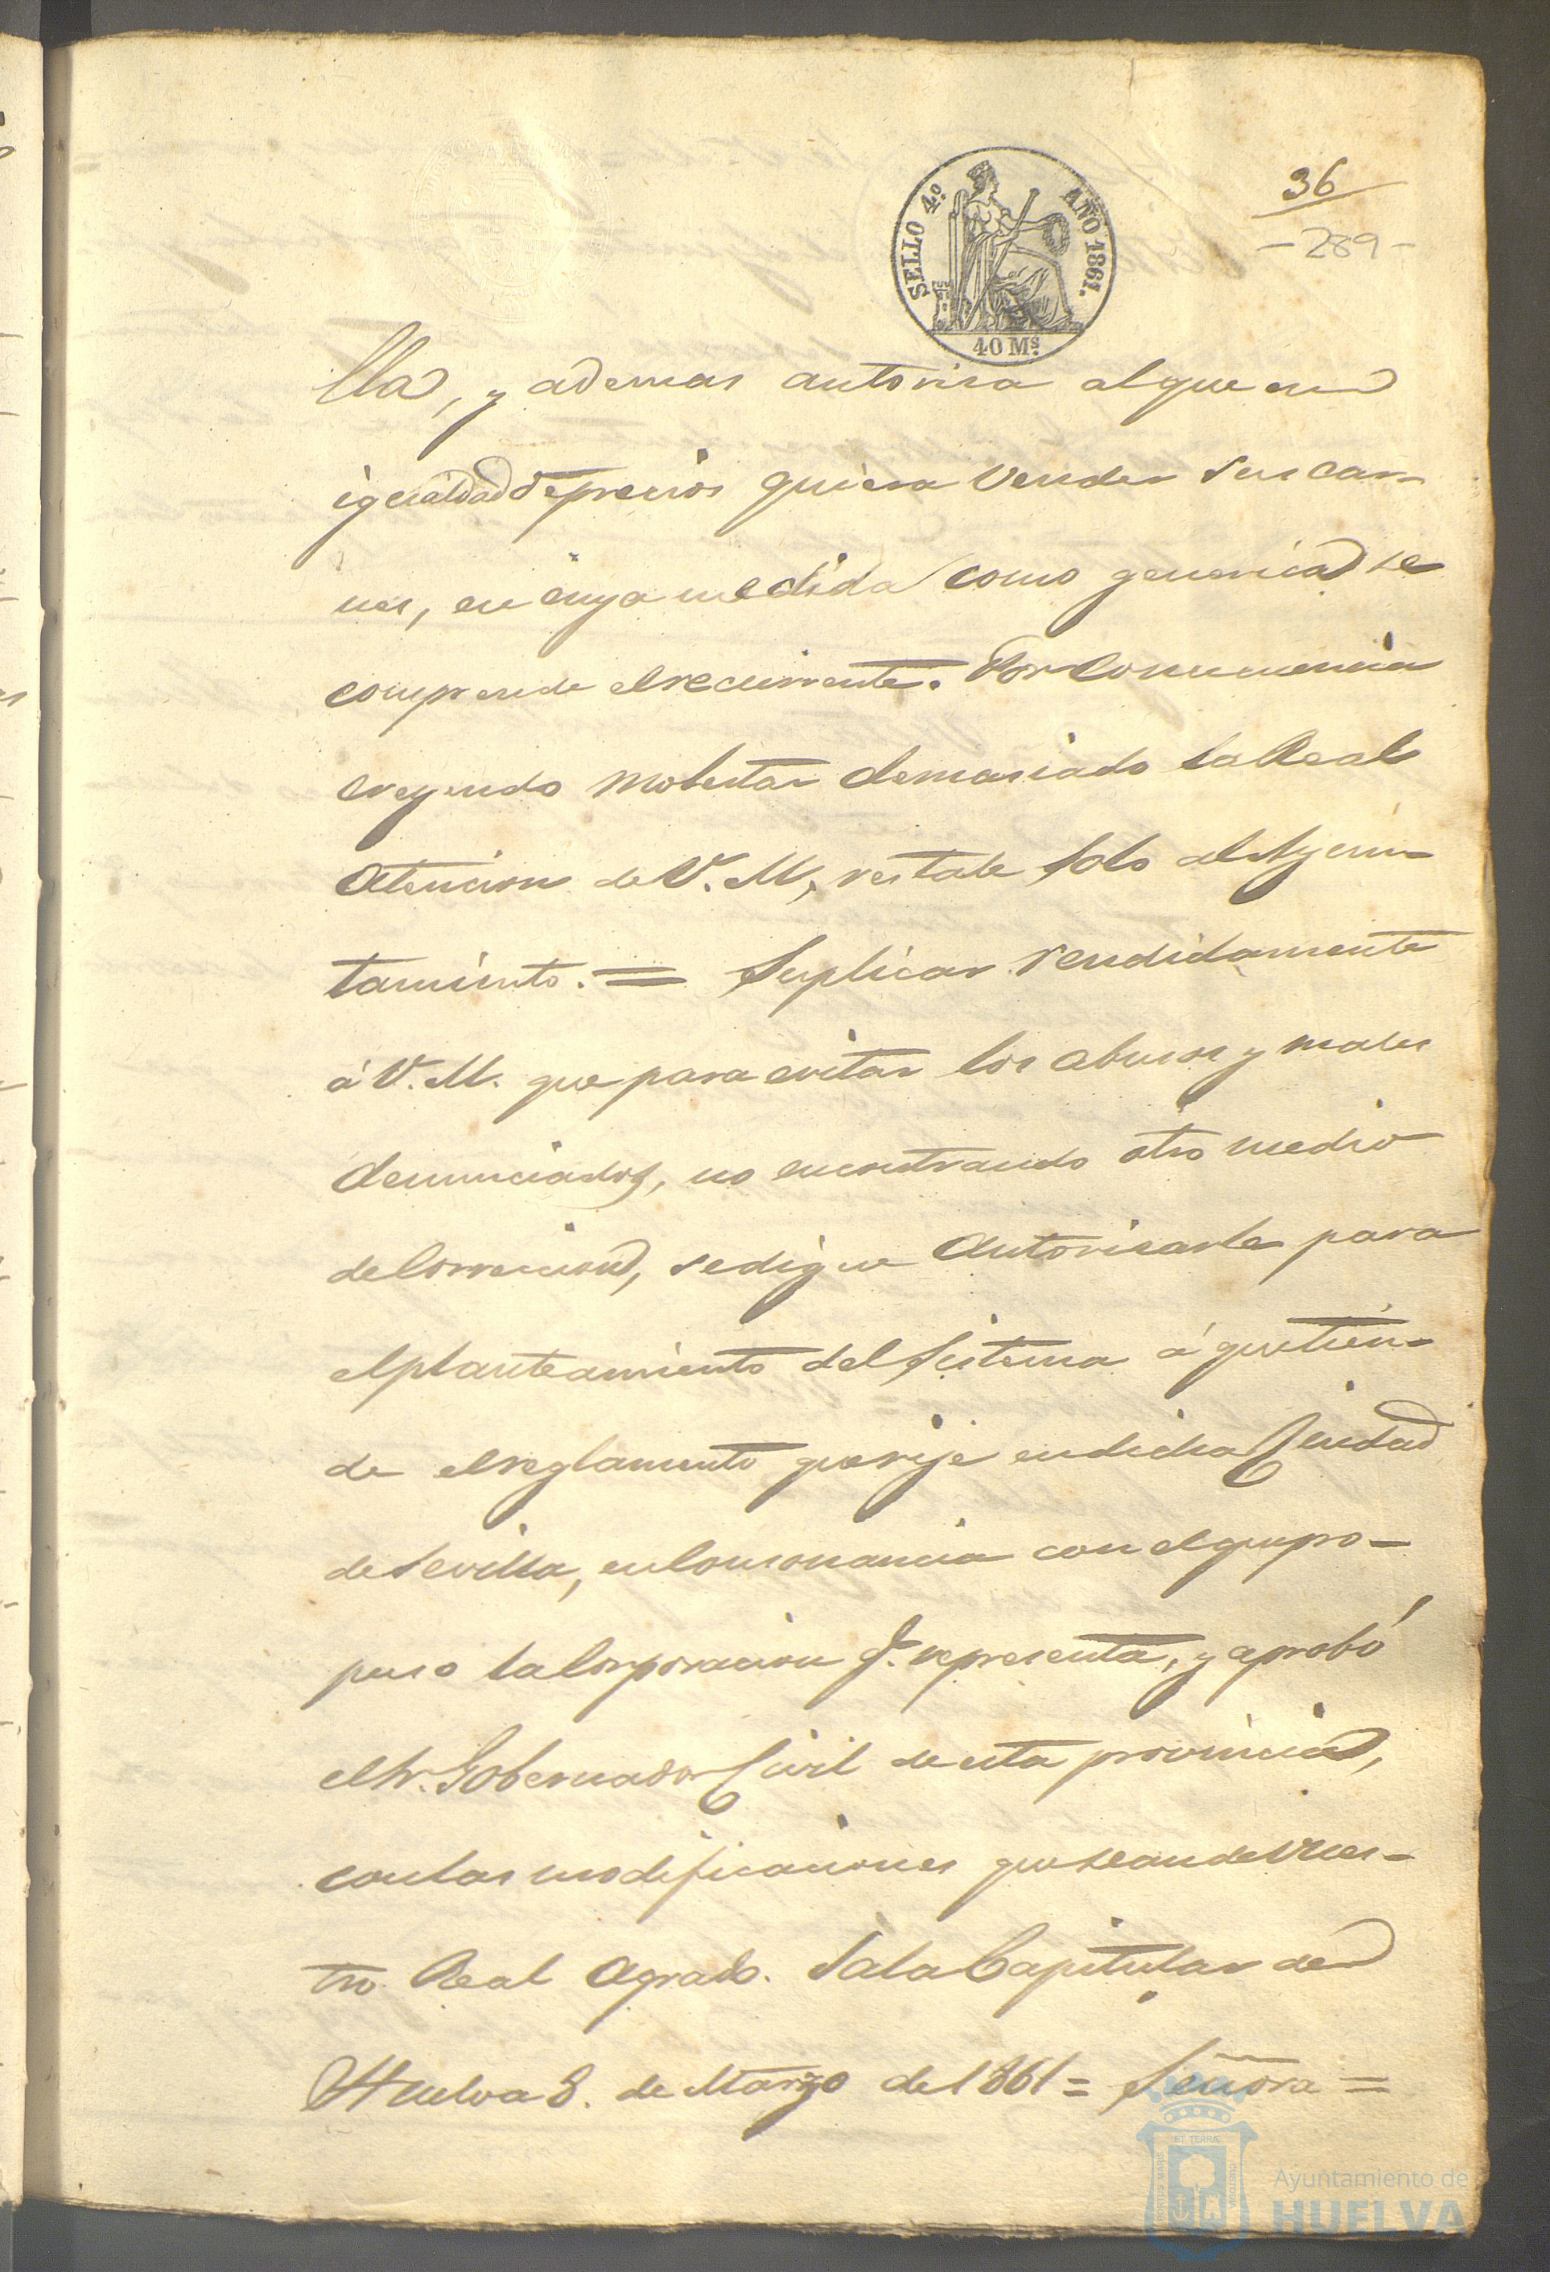 SELLO 4.º AÑO 1861.
40 M.s
36
- 289 -
lla, y ademas autorisa al que en
igualdad de precios quiera vender sus car-
nes, en cuya medida como generica se
comprende el recurrente. Por consecuencia
creyendo molestar demasiado la Real
Atencion de V. M., restale solo al Ayun-
tamiento. = Suplicar rendidamente
á V. M. que para evitar los abusos y males
denunciados, no encontrando otro medio
de Correccion, se digne Autorisarle para
el planteamiento del Sistema á que tien-
de el reglamento que rije en dicha Ciudad
de Sevilla, en Consonancia con el que pro-
puso la Corporacion q.e representa, y aprobó
el Sr. Gobernador Civil de esta provincia,
con las modificaciones que sean de Vues-
tro Real Agrado. Sala Capitular de
Huelva 8. de Marzo de 1861 = Señora =
Ayuntamiento de
HUELVA